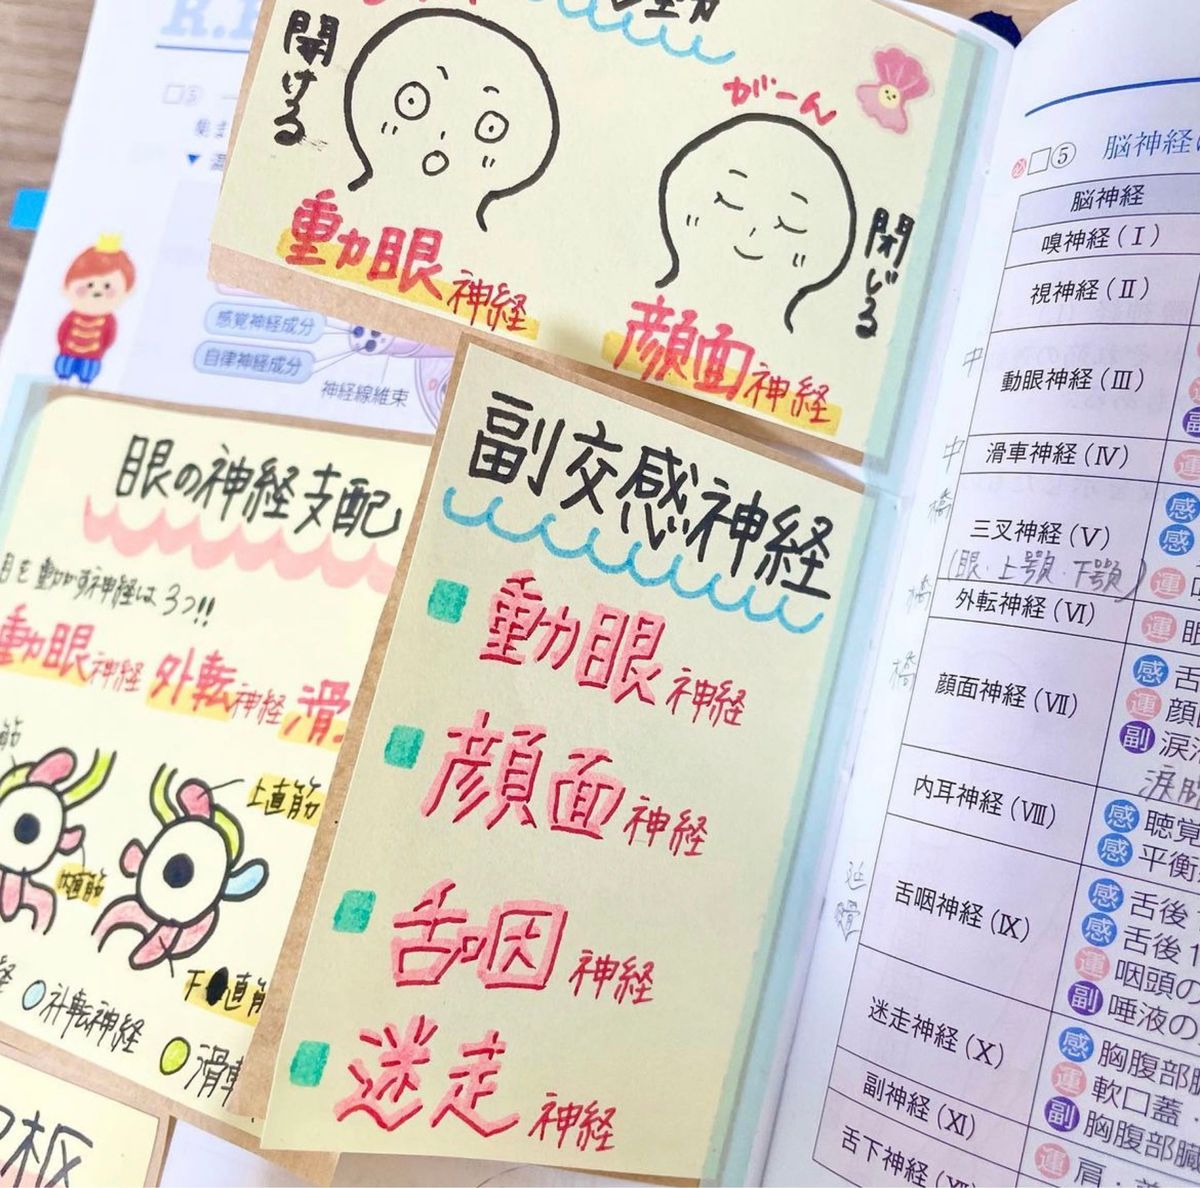 開ける
動眼神経
がーん
閉じる
顔面神経
感覚神経成分
自律神経成分
神経線維束
眼の神経支配
目を動かす神経は3つ!!
動眼神経 外転神経 滑
上直筋
内直筋
下直筋
外転神経
滑車
副交感神経
動眼神経
顔面神経
舌咽神経
迷走神経
□⑤ 脳神経
脳神経
嗅神経(Ⅰ)
視神経(Ⅱ)
中
動眼神経(Ⅲ)
副
中
滑車神経(Ⅳ)
運
橋
三叉神経(Ⅴ)
(眼・上顎・下顎)
感
感
運
橋
外転神経(Ⅵ)
運 眼
橋
顔面神経(Ⅶ)
感 舌
運 顔
副 涙
涙腺
内耳神経(Ⅷ)
感 聴覚
感 平衡
延髄
舌咽神経(Ⅸ)
感 舌後
感 舌後1
運 咽頭の
副 唾液の
迷走神経(Ⅹ)
感 胸腹部
運 軟口蓋
副 胸腹部臓
副神経(Ⅺ)
運 肩・
舌下神経